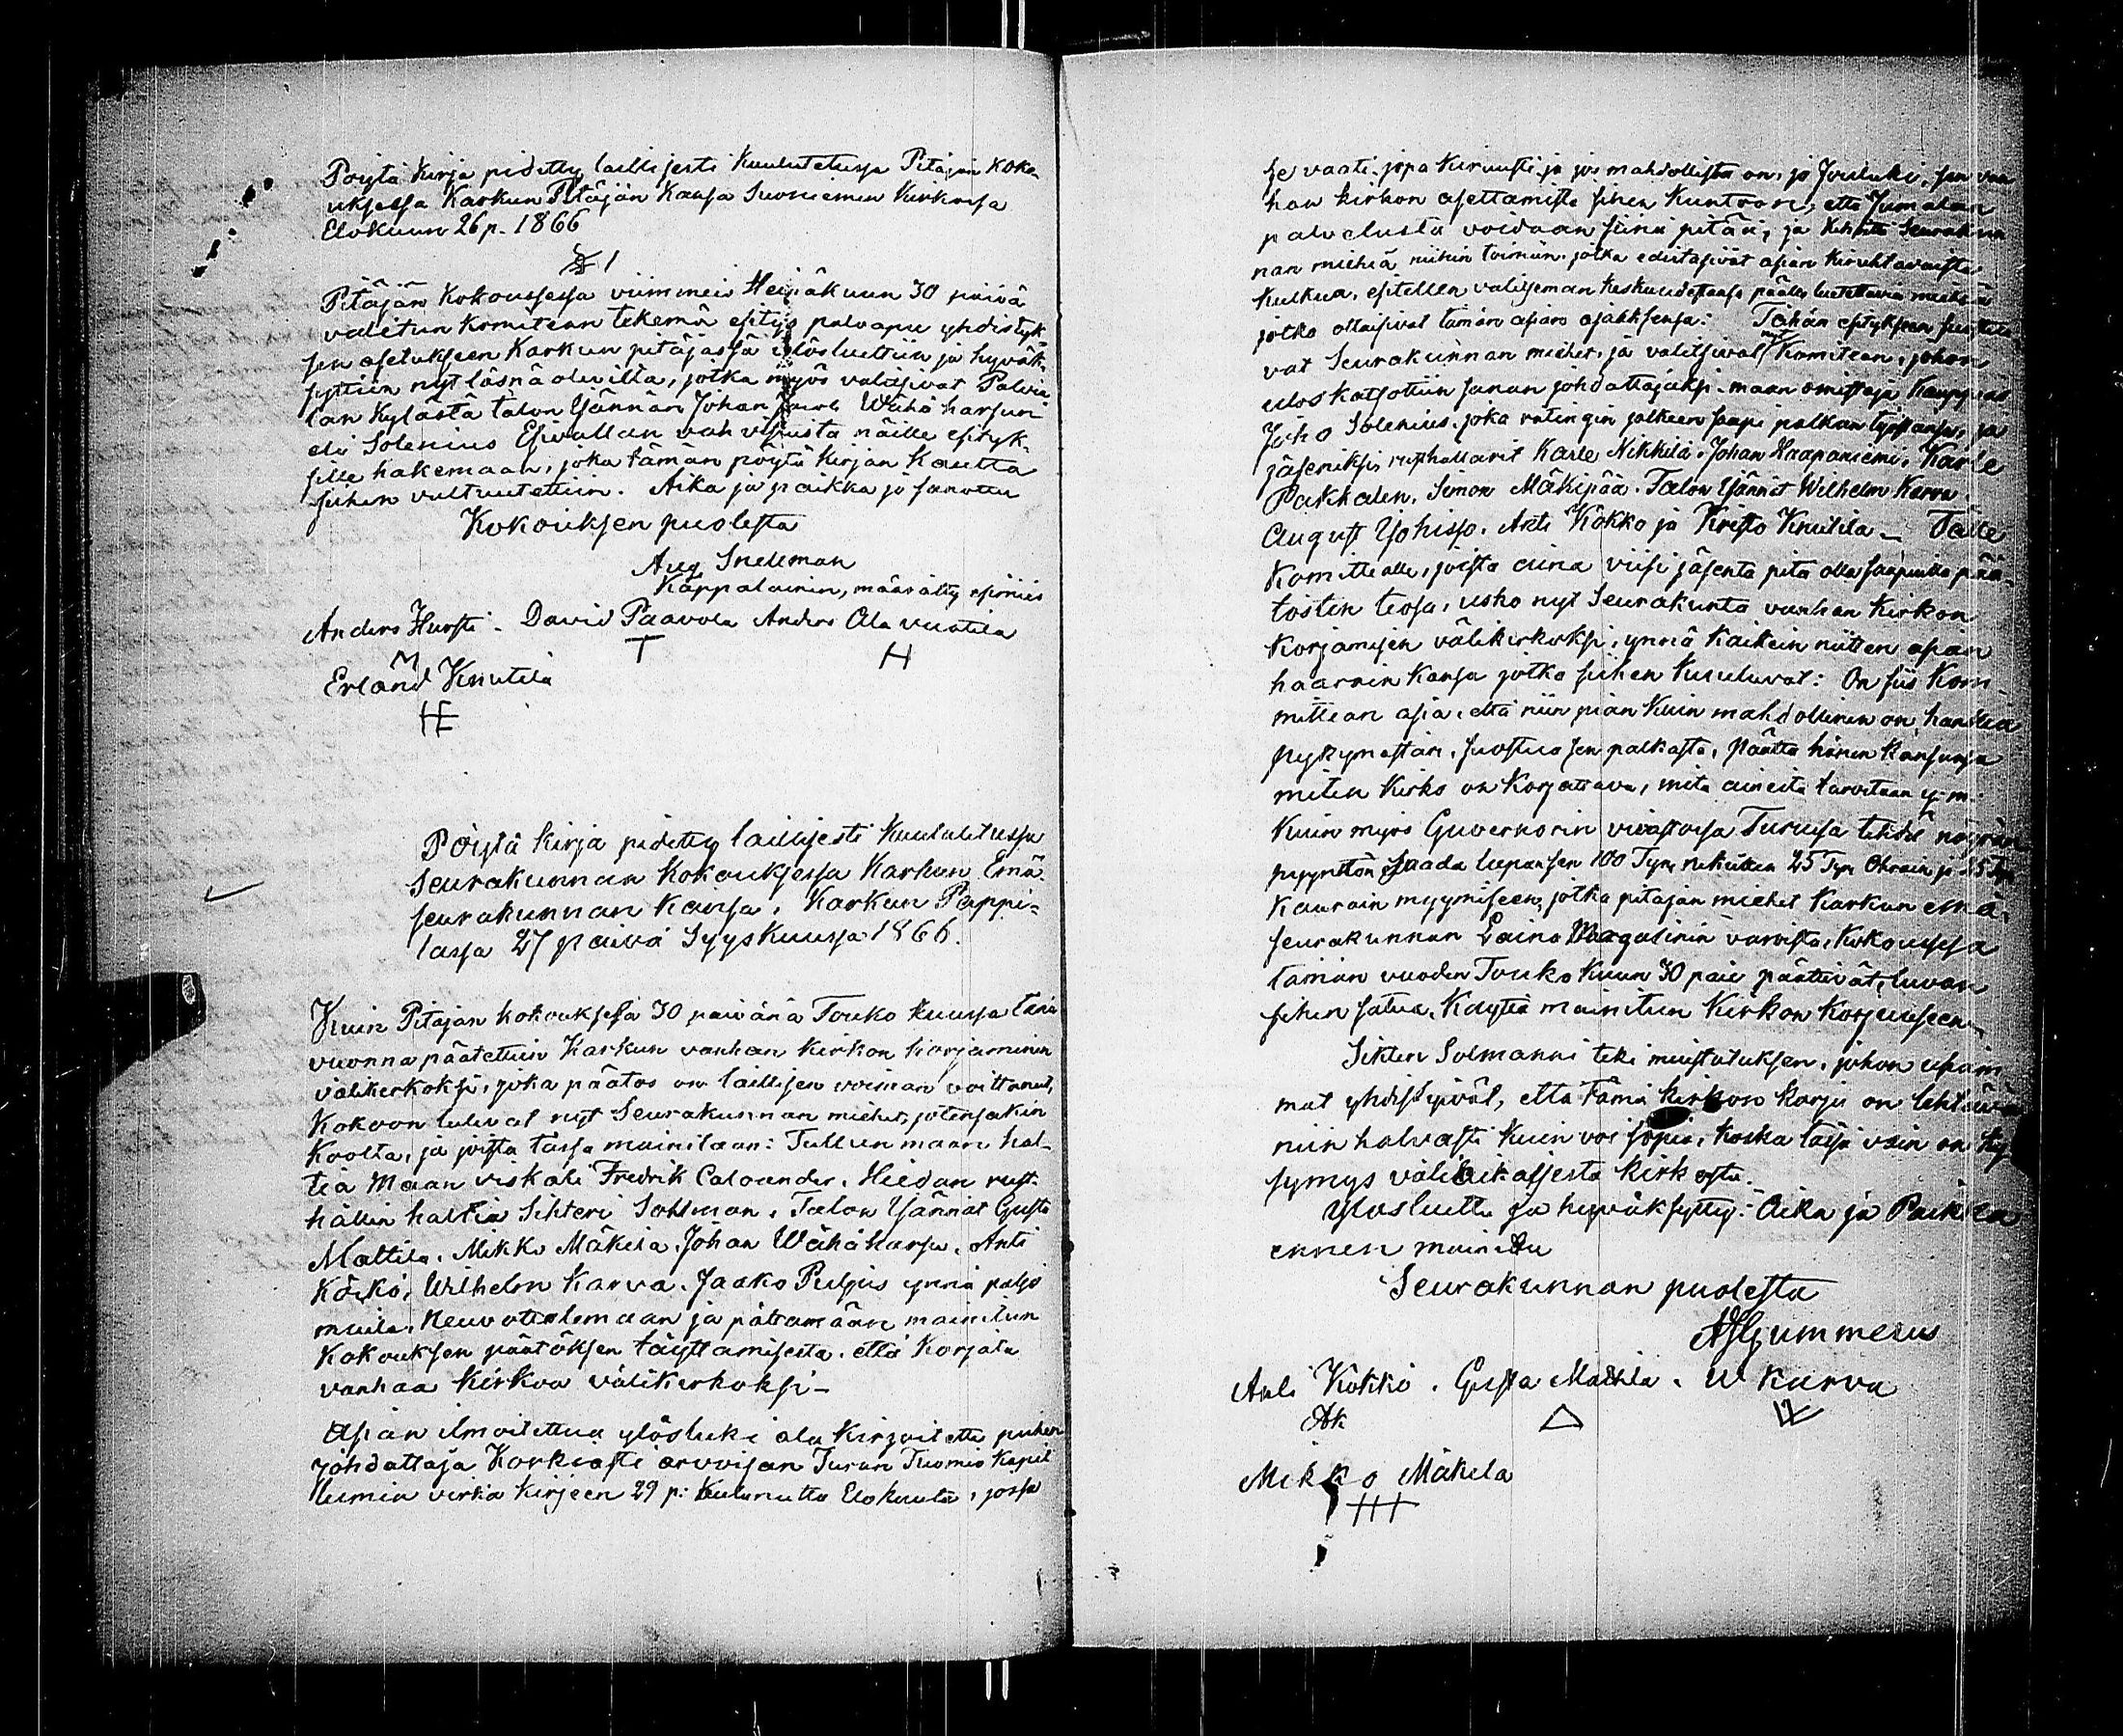 Pöytä Kirja pidetty laillisesti Kuulutetussa Pitäjän Koko-
uksessa Karkun Pitäjän Kansa Suoniemen Kirkossa
Elokuun 26 p. 1866
§ 1
Pitäjän Kokouksessa viimmeis Heinäkuun 30 päivä
valitun Komitean tekemä esitys paloapu yhdistyk-
sen asetukseen Karkun pitäjässä ylösluettiin ja hyväk-
syttiin nyt läsnä olevilta, jotka myös valitsivat Palvia-
lan Kylästä talon Isännän Johan Wähä harsun
eli Solenius Esivallan vahvistusta näille esityk-
sille hakemaan, joka tämän pöytä Kirjan Kautta
siihen valtuutettiin. Aika ja paikka jo sanottu
Kokouksen puolesta
Aug Snellman
Kappalainen, määrätty esimies
Anders Hursti. David Paavola Anders Ala vuotila
M T H
Erland Knutila
HE
Pöytä kirja pidetty laillisesti Kuulutetussa
Seurakunnan Kokouksessa Karkun Emä-
seurakunnan Kansa, Karkun Pappi-
lassa 27 päivä Syyskuussa 1866.
Kuin Pitäjän kokouksessa 30 päivänä Touko kuussa tänä
vuonna päätettiin Karkun vanhan Kirkon korjaminen
välikirkoksi, joka päätös on laillisen voiman voittanut,
Kokoon tulivat nyt Seurakunnan miehet, jotensakin
koolta, ja joista tässä mainitaan: Tullun maan hal-
tia Maan viskali Fredrik Caloander. Hiedan rust-
hållin haltia Sihteri Sohlman. Talon Isännät Gusta
Mattila. Mikko Mäkela Johan Wähä harsu. Anti
Kökkö, Wilhelm Karva. Jaako Puljus ynnä paljo
muita, Neuvottelemaan ja päättämään mainitun
Kokouksen päätöksen täyttamisestä, että Korjata
vanhaa Kirkoa välikirkoksi -
Asian ilmoitettua ylösluki ala kirjoitettu puhen
johdattaja Korkiasti arvoisan Turun Tuomio Kapit-
lumin virka Kirjeen 29 p: Kulunutta Elokuuta, jossa
se vaatii jopa kiruusti ja jos mahdollista on, jo Jouluki, sen van
han kirkon asettamista siihen Kuntoon, että Jumalan
palvelusta voidaan siinä pitää, ja Kehoitta Seurakun
nan miehiä niihin toimiin, jotka edistäsivät asian kiruhtavaista
Kulkua, esitellen valitseman keskuudestansa päälle luetettavia miehiä
jotka ottaisivat tämän asian ajaaksensa: Tähän esitykseen suostu
vat Seurakunnan miehet, ja valitsivat nyt Komitean, johon
uloskatsottiin sanan johdattajaksi maan omistaja Kauppias
Joho Solenius, joka ratingin jälkeen saapi palkan työstänsä, ja
jäseniksi rusthållarit Kaile Nikkilä. Johan Haapaniemi. Karle
Pakkalen. Simon Mäkipää. Talon Isännät Wilhelm Karva.
August Isohiiso. Anti Kökkö ja Kristo Knutila - Tälle
Komittealle, joista aina viisi jäsentä pitä olla saapuilla pää-
tösten teosa, usko nyt Seurakunta vanhan Kirkon
korjamisen välikirkoksi, ynnä Kaikein niitten asian
haarain Kansa jotka siihen Kuuluvat: On siis Kom-
mittean asia, että niin pian Kuin mahdollinen on hankia
mestarin, suostua sen palkasta, Päättä hänen Kansansa
miten Kirko on Korjattava, mitä aineita tarvitaan y. m.
Kuin myös Guvernorin virastossa Turussa tehdä nöyrän
pyynnön Saada lupausen 100 Tyn. rukiitten 25 Tyn Ohrain ja 25 Tyn
Kaurain myymiseen, jotka pitäjän miehet Karkun emä-
seurakunnan Laina Magasinin varoista, Kokouksessa
tämän vuoden Touko Kuun 30 päiv päättivät, luvan
siihen satua, Käyttä mainitun Kirkon Korjaukseen.
Sihteri Solmanni teki muistutuksen, johon useim
mat yhdistyivät, että tämä kirkon korju on tehtävä
niin halvasti kuin voi sopia, koska tässä vain on ky-
symys väliaikaisesta kirkosta.
Ylösluettu ja hyväksytty. Aika ja Paikka
ennen mainittu
Seurakunnan puolesta
Gummerus
Anti Kökkö. Gusta Mattila. W Karva
AK
Mikko Mäkela